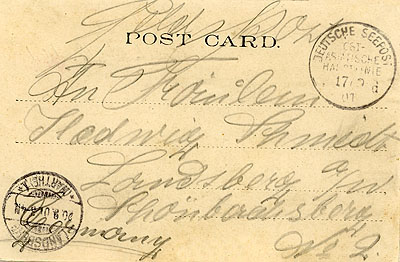 Feldpost
POST CARD.
DEUTSCHE SEEPOST
OST-
ASIATISCHE
HAUPTLINIE
17
01
An Fräulein
Hedwig Schmidt
Landsberg a/W
Schönbachsberg
No 2.
Germany
LANDSBERG
(WARTHE)
20.9.01